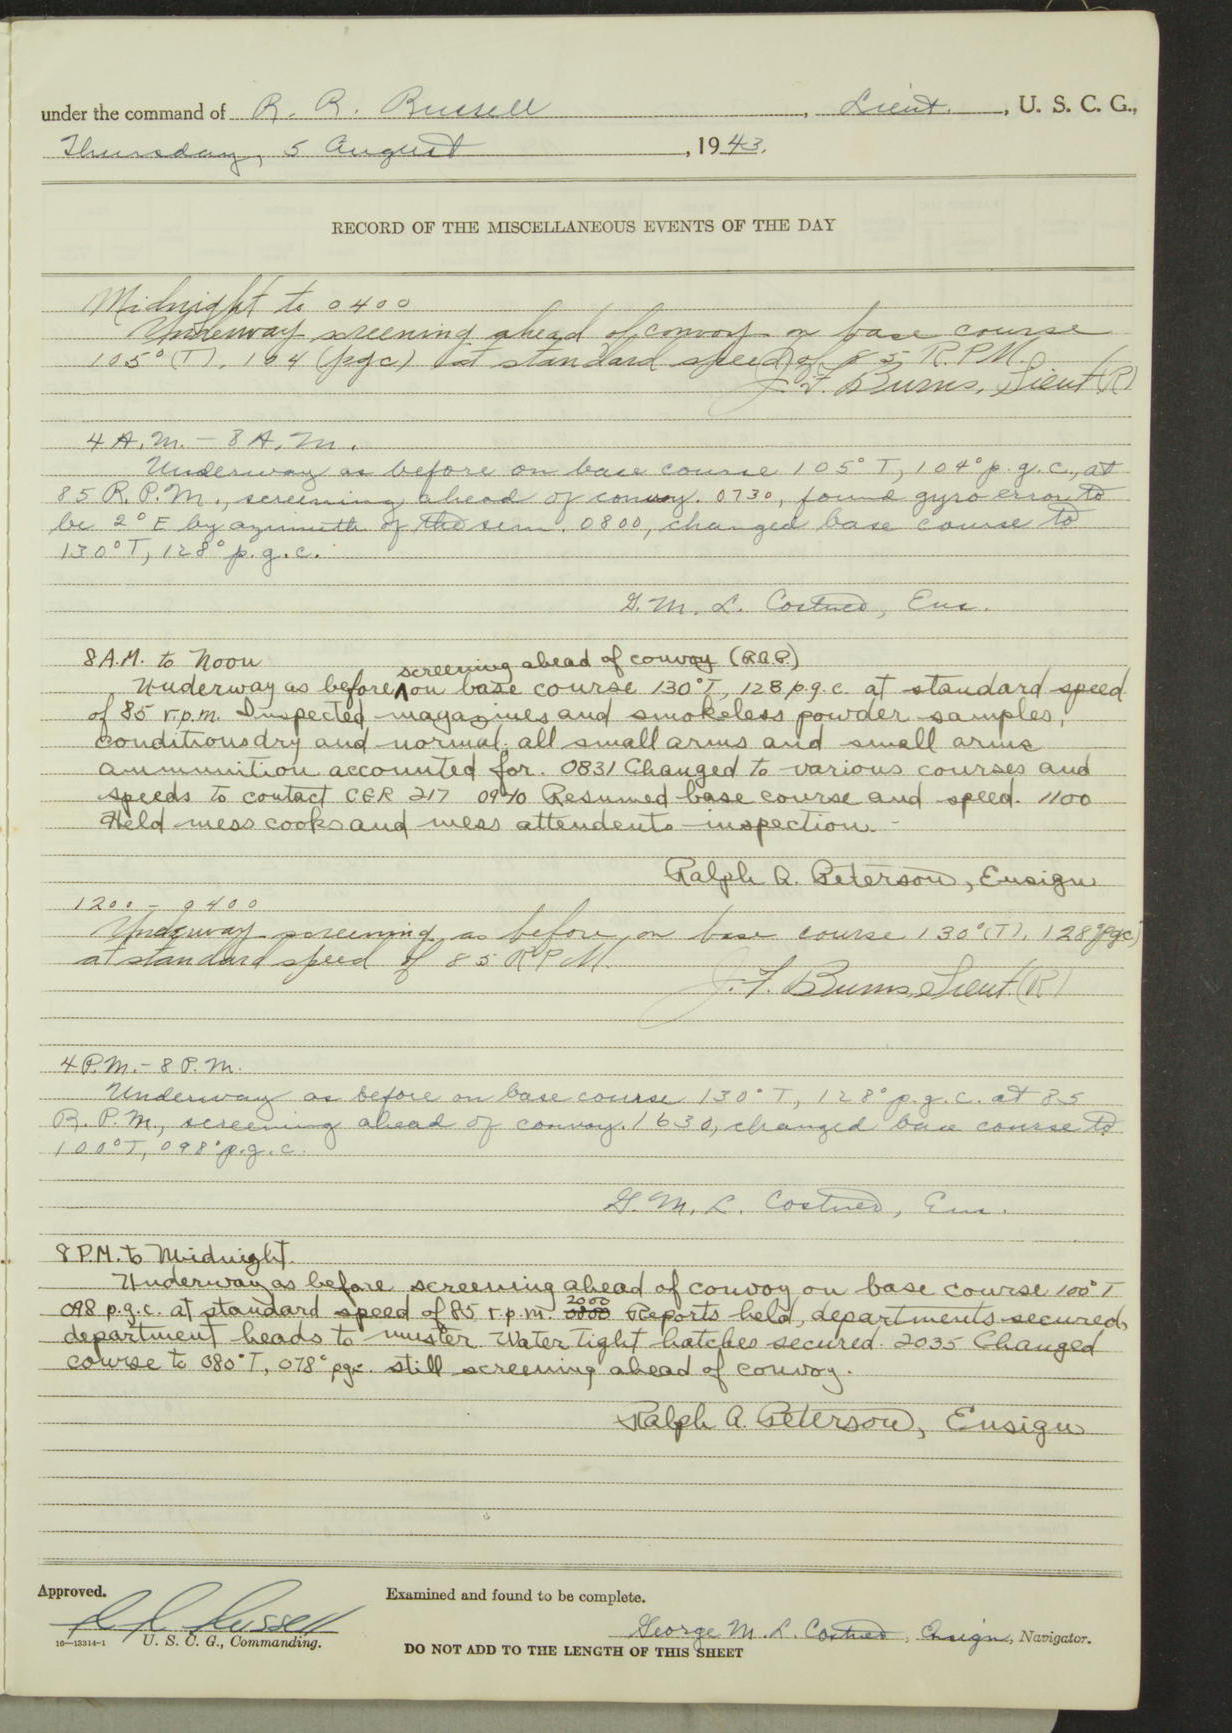 under the command of R. R. Russell, Lieut., U. S. C. G.,
Thursday, 5 August, 1943.
RECORD OF THE MISCELLANEOUS EVENTS OF THE DAY
Midnight to 0400
Underway screening ahead of convoy on base course
105° (T). 104 (pgc) at standard speed of 85 R.P.M.
J. F. Burns, Lieut (R)
4 A.M. - 8 A.M.
Underway as before on base course 105° T, 104° p.g.c., at
85 R.P.M., screening ahead of convoy. 0730, found gyro error to
be 2° E by azimuth of the sun. 0800, changed base course to
130° T, 128° p.g.c.
G. M. L. Costner, Ens.
8 A.M. to Noon
screening ahead of convoy (R.A.P.)
Underway as before on base course 130° T, 128 p.g.c. at standard speed
of 85 r.p.m. Inspected magazines and smokeless powder samples,
conditions dry and normal; all small arms and small arms
ammunition accounted for. 0831 Changed to various courses and
speeds to contact CGR 217 0940 Resumed base course and speed. 1100
Held mess cooks and mess attendents inspection.
Ralph A. Peterson, Ensign
1200 - 0400
Underway screening as before on base course 130° (T). 128° (pgc)
at standard speed of 85 R.P.M.
J. F. Burns, Lieut. (R)
4 P.M. - 8 P.M.
Underway as before on base course 130° T, 128° p.g.c. at 85
R.P.M., screening ahead of convoy. 1630, changed base course to
100° T, 098° p.g.c.
G. M. L. Costner, Ens.
8 P.M. to Midnight.
Underway as before screening ahead of convoy on base course 100° T
098 p.g.c. at standard speed of 85 r.p.m. 2000 Reports held, departments secured,
department heads to muster. Water tight hatches secured. 2035 Changed
course to 080° T, 078° pgc. still screening ahead of convoy.
Ralph A. Peterson, Ensign
Approved.
Examined and found to be complete.
R R Russell
George M. L. Costner, Ensign, Navigator.
16—13314-1 U. S. C. G., Commanding.
DO NOT ADD TO THE LENGTH OF THIS SHEET